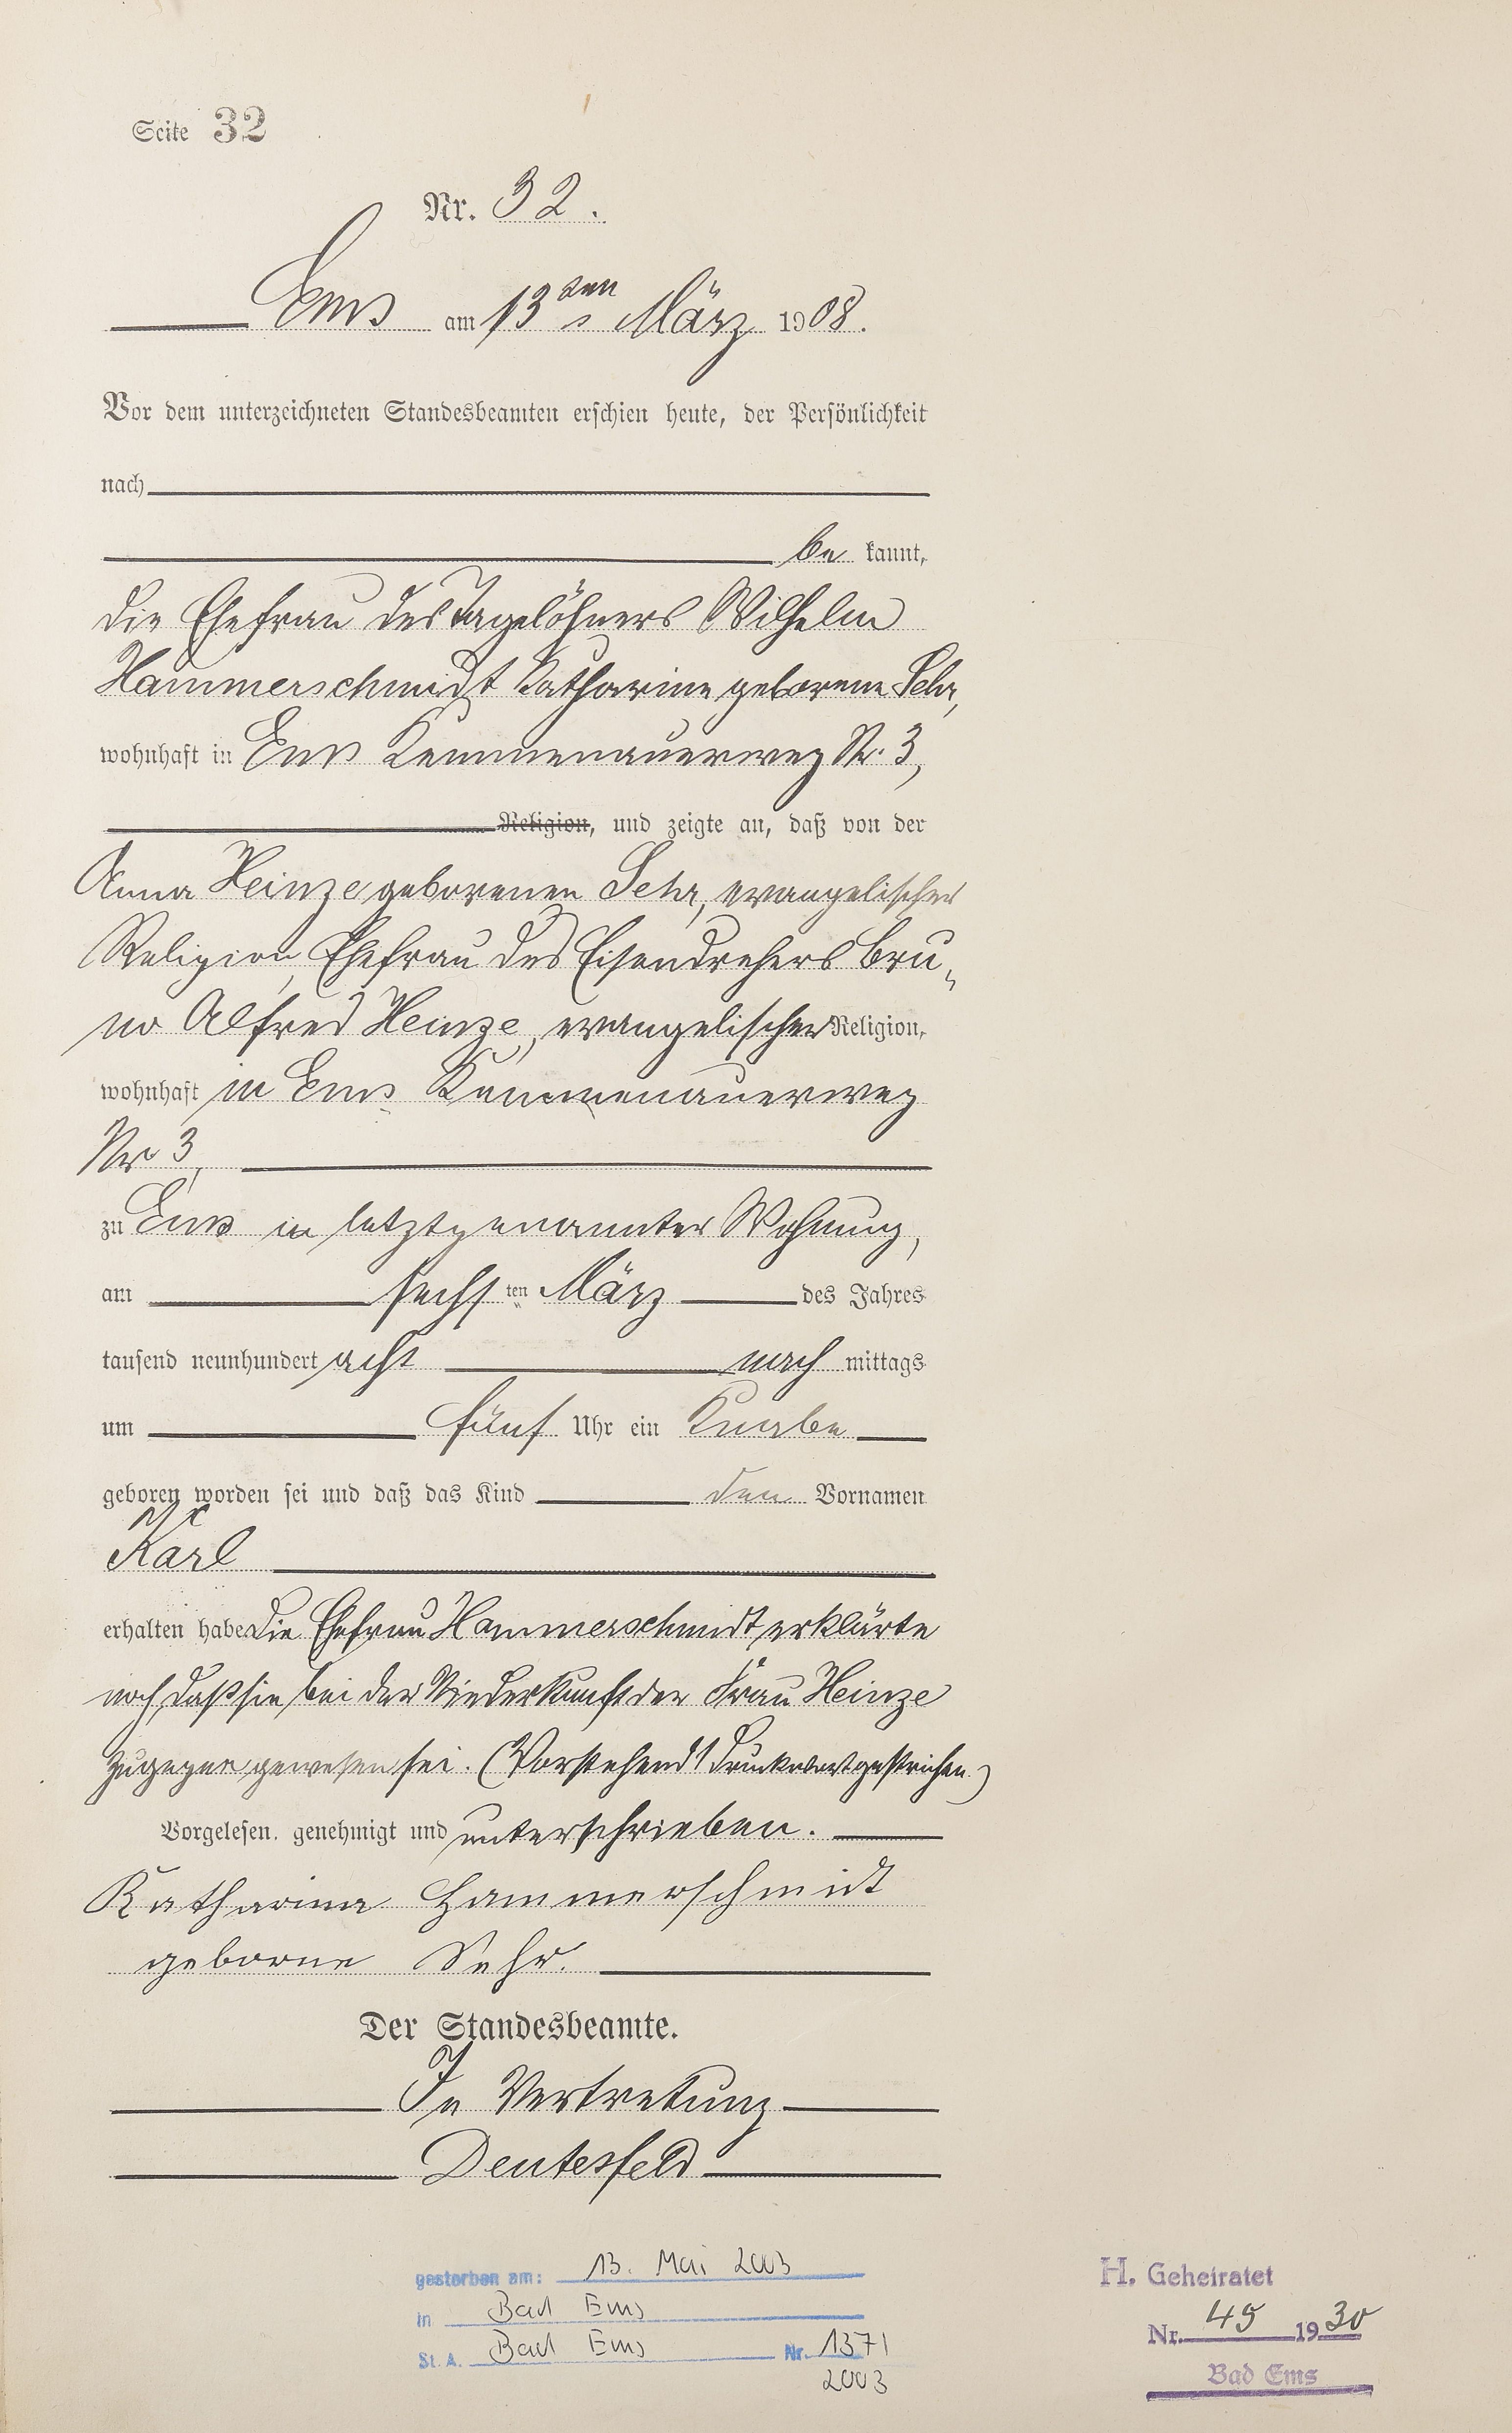 Seite 32
Nr. 32.
Ems am 13ten März 1908.
Vor dem unterzeichneten Standesbeamten erschien heute, der Persönlichkeit
nach
be kannt,
die Ehefrau des Tagelöhners Wilhelm
Hammerschmidt Katharine geborene Sehr,
wohnhaft in Ems Kemmenauerweg Nr. 3,
Religion, und zeigte an, daß von der
Anna Heinze geborenen Sehr, evangelischer
Religion, Ehefrau des Eisendrehers Bru-
no Alfred Heinze, evangelischer Religion,
wohnhaft in Ems Kemmenauerweg
Nr 3,
zu Ems in letztgenannter Wohnung,
am sechsten März des Jahres
tausend neunhundert acht nach mittags
um fünf Uhr ein Knabe
geboren worden sei und daß das Kind den Vornamen
Karl
erhalten habe. Die Ehefrau Hammerschmidt erklärte
noch, daß sie bei der Niederkunft der Frau Heinze
zugegen gewesen sei. (Vorstehend 1 Druckwort gestrichen.)
Vorgelesen, genehmigt und unterschrieben.
Katharina Hammerschmidt
geborne Sehr.
Der Standesbeamte.
In Vertretung
Deutesfeld
gestorben am: 13. Mai 2003
in Bad Ems
St. A. Bad Ems Nr. 1371
2003
H. Geheiratet
Nr. 45 1930
Bad Ems